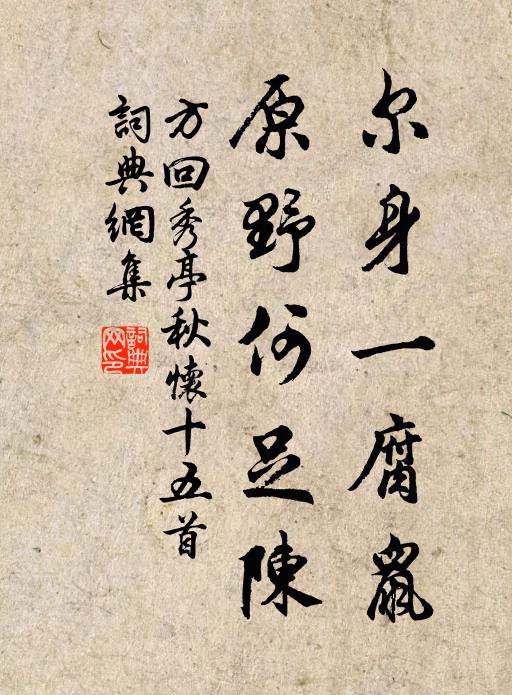 尔身一腐鼠
原野何足陳
方回秀亭秋懷十五首
詞典網集
詞典網印